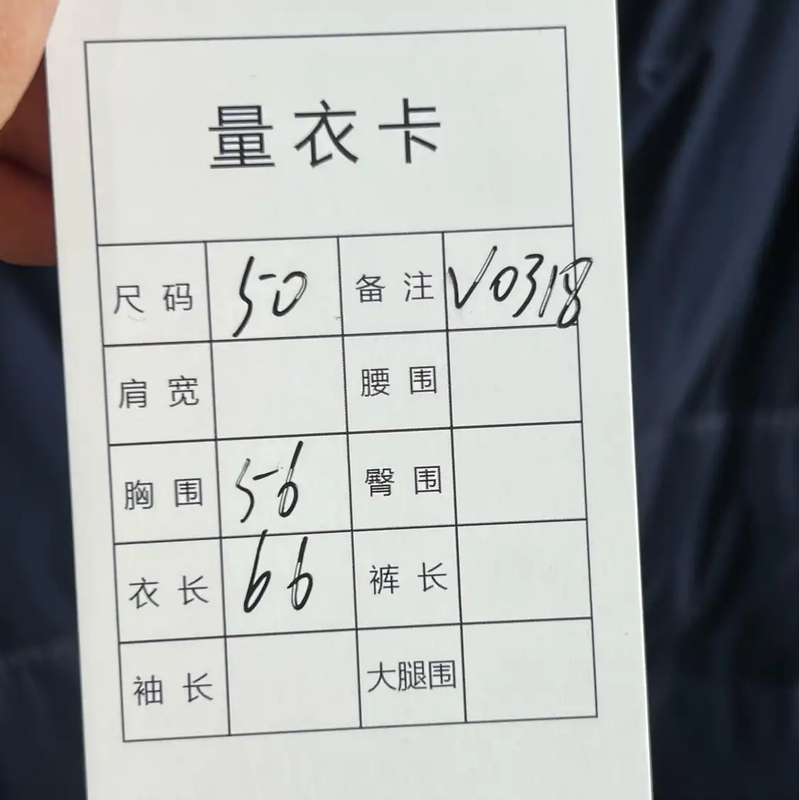 量衣卡
尺码 50 备注 V0318
肩宽 腰围
胸围 56 臀围
衣长 66 裤长
袖长 大腿围